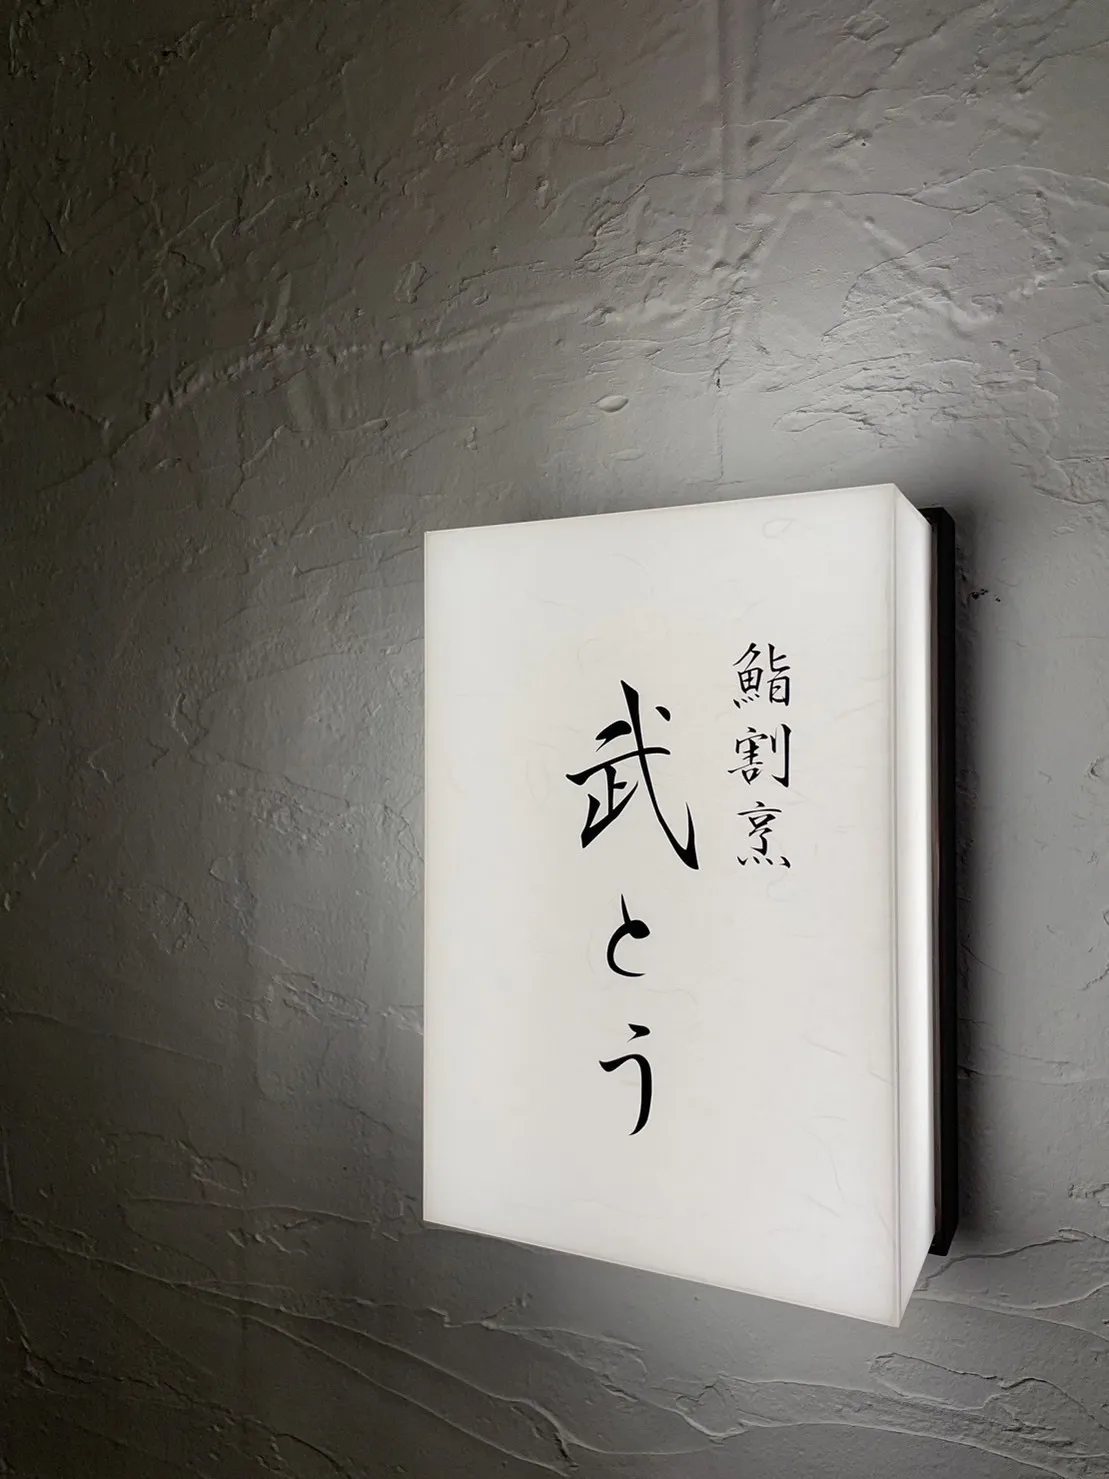 鮨割烹
武とう